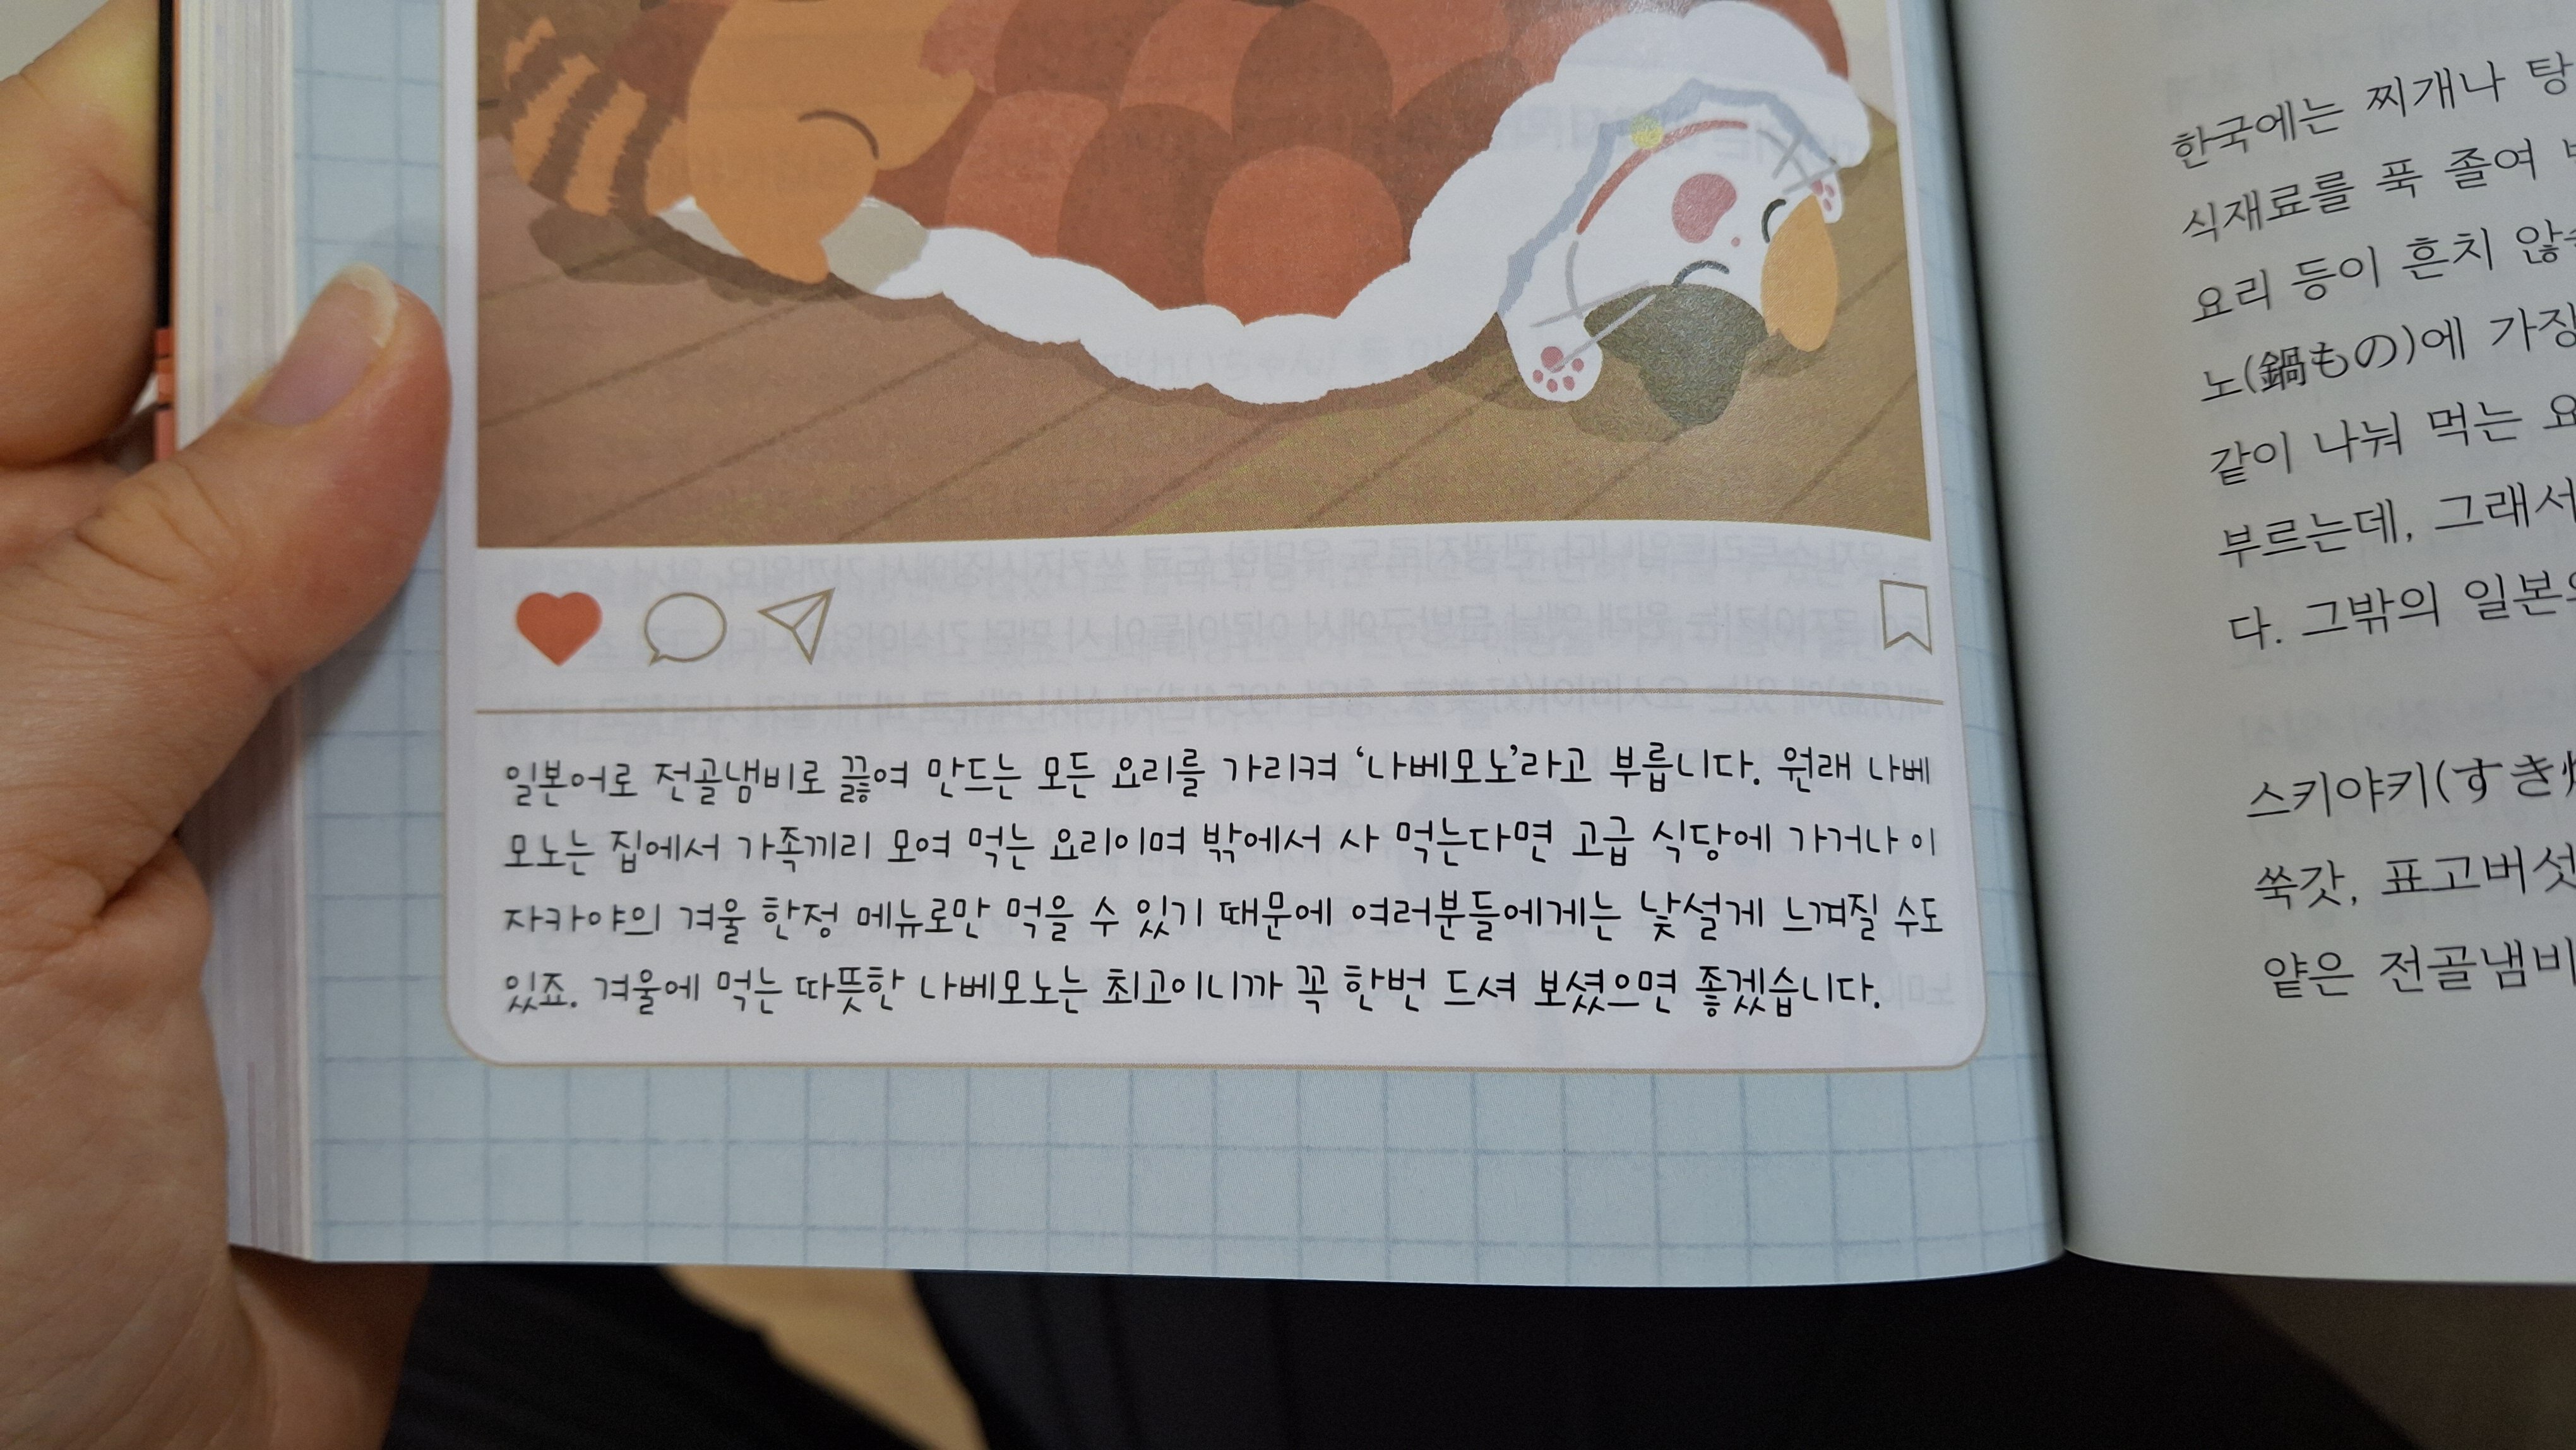 일본어로 전골냄비로 끓여 만드는 모든 요리를 가리켜 ‘나베모노’라고 부릅니다. 원래 나베
모노는 집에서 가족끼리 모여 먹는 요리이며 밖에서 사 먹는다면 고급 식당에 가거나 이
자카야의 겨울 한정 메뉴로만 먹을 수 있기 때문에 여러분들에게는 낯설게 느껴질 수도
있죠. 겨울에 먹는 따뜻한 나베모노는 최고이니까 꼭 한번 드셔 보셨으면 좋겠습니다.
한국에는 찌개나 탕
식재료를 푹 졸여
요리 등이 흔치
노(鍋もの)에 가장
같이 나눠 먹는
부르는데, 그래서
다. 그밖의 일본
스키야키(すき
쑥갓, 표고버섯
얕은 전골냄비